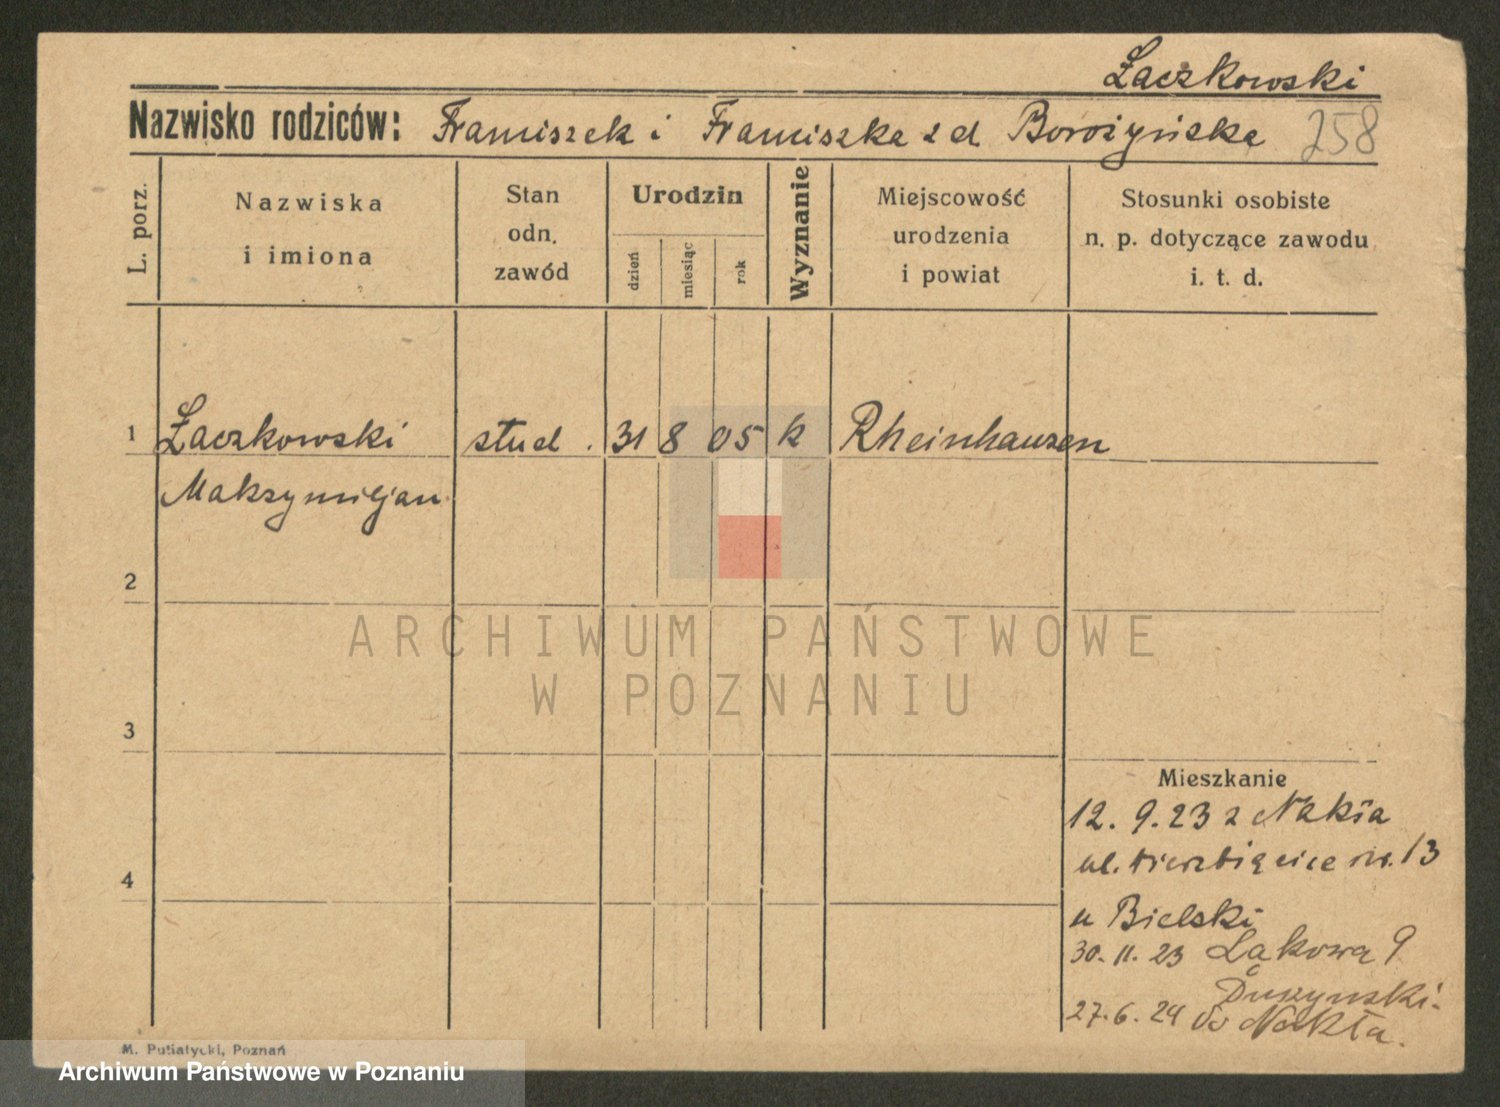 Łaczkowski
Nazwisko rodziców: Franciszek i Franciszka z d Borożyńska 258
L. porz.
Nazwiska
i imiona
Stan
odn.
zawód
Urodzin
dzień
miesiąc
rok
Wyznanie
Miejscowość
urodzenia
i powiat
Stosunki osobiste
n. p. dotyczące zawodu
i. t. d.
1 Łaczkowski stud. 31 8 05 k Rheinhausen
Maksymiljan
2
3
4
Mieszkanie
12. 9. 23 z Nakła
ul. Wierzbięcice nr. 13
u Bielski
30. 11. 23 Łąkowa 9
Duszyński.
27. 6. 24 do Nakła.
M. Putiatycki, Poznań
ARCHIWUM PAŃSTWOWE
W POZNANIU
Archiwum Państwowe w Poznaniu